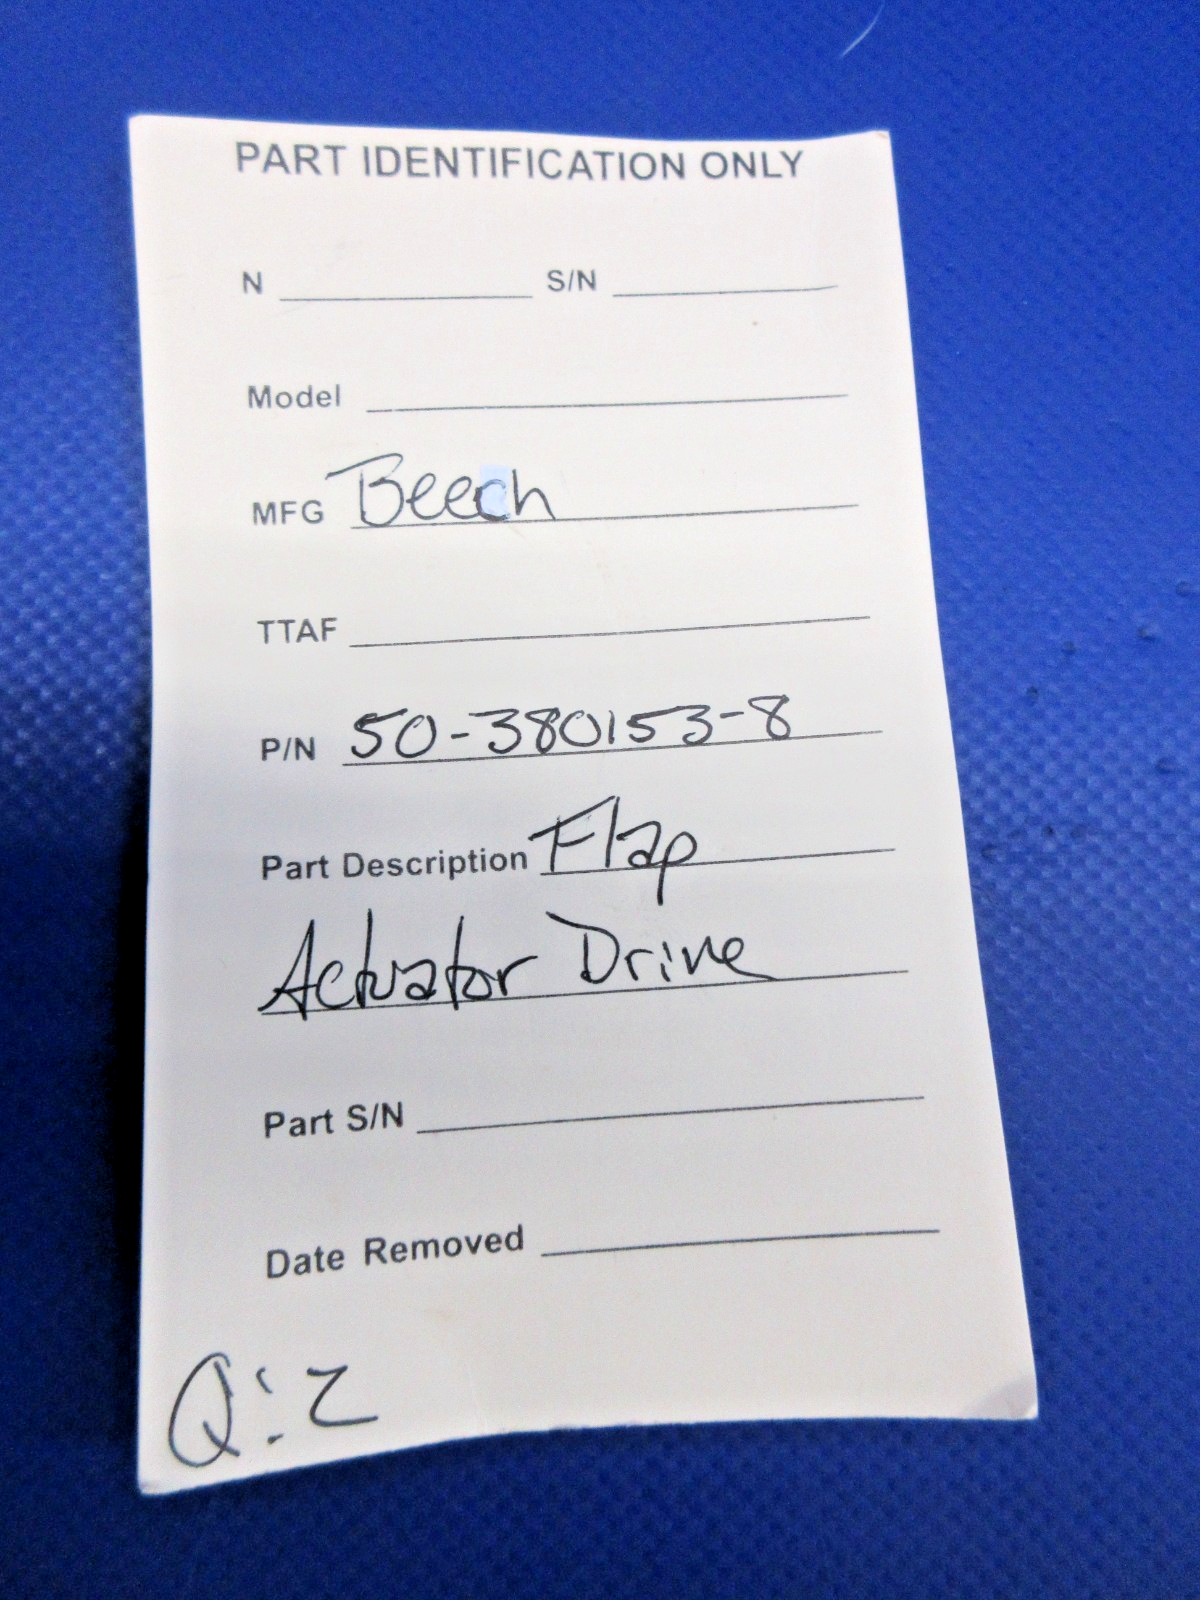 PART IDENTIFICATION ONLY
N S/N
Model
MFG Beech
TTAF
P/N 50-380153-8
Part Description Flap
Actuator Drive
Part S/N
Date Removed
Q: 2